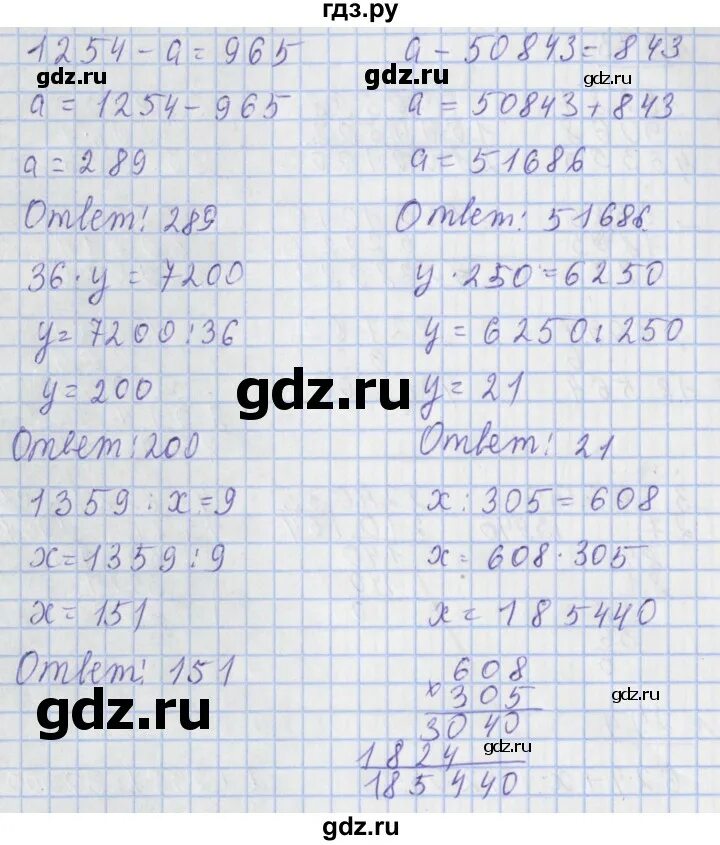 гдз.ру
1254 - a = 965
gdz.ru
a = 1254 - 965
a = 289
Ответ: 289
36 · y = 7200
y = 7200 : 36
y = 200
Ответ: 200
1359 : x = 9
x = 1359 : 9
x = 151
Ответ: 151
gdz.ru
a - 50843 = 843
gdz.ru
a = 50843 + 843
a = 51686
Ответ: 51686
y · 250 = 6250
y = 6250 : 250
gdz.ru
y = 21
Ответ: 21
x : 305 = 608
x = 608 · 305
x = 185440
608
x 305
gdz.ru
3040
1824
gdz.ru
185440
gdz.ru